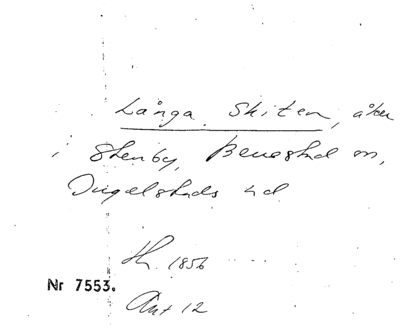 Långa Skiten, åker
i Stenby, Benestad sn,
Ingelstads hd
Sk. 1856
Nr 7553.
Akt 12